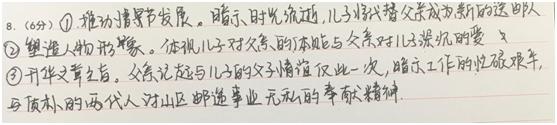 8.(6分)①推动情节发展。暗示时光流逝,儿子将代替父亲成为新的送邮人
②塑造人物形象。体现儿子对父亲的体贴与父亲对儿子深沉的爱
③升华文章主旨。父亲记起与儿子的父子情谊仅此一次,暗示工作的忙碌艰辛,
与质朴的两代人对山区邮递事业无私的奉献精神.